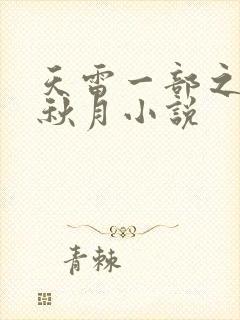 天雷一部之
秋月小説
青棘